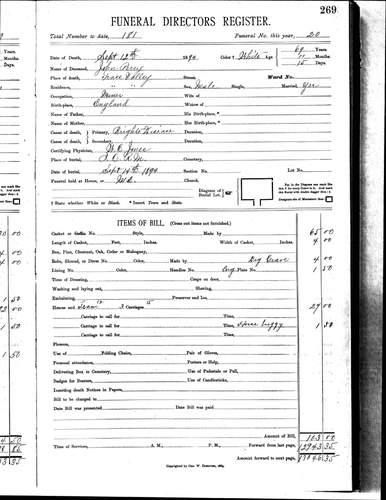 269
FUNERAL DIRECTORS REGISTER.
Total Number to date, 181 Funeral No. this year, 20
Date of Death, Sept 12th 1894 Color † White Age 69 Years. 11 Months. 15 Days.
Name of Deceased, John
Place of Death, Grass Valley Street, Ward No.
Residence, " " Sex, Male Single, Married, Yes
Occupation, Miner Widow of
Birth-place, England Waiver of
Name of Father, His Birth-place,
Name of Mother, Her Birth-place,
Cause of death Primary, Brights Disease Duration,
Cause of death Secondary, Duration,
Certifying Physician, W. C. Jones
Place of burial, Cemetery,
Date of burial, Sept 14th 1894 Section No. Lot No.
Funeral held at House, or Church,
Diagram of Burial Lot
† State whether White or Black. * Insert Town and State.
ITEMS OF BILL. (Cross out items not furnished.)
Casket or Coffin No. Style, Made by 65 00
Length of Casket, Feet, Inches. Width of Casket, Inches. 4 00
Box, Pine, Chestnut, Oak, Cedar or Mahogany,
Robe, Shroud, or Dress No. Color, Made by Dig Grave 4 00
Lining No. Color, Handles No. Eng Plate No. 1 50
Time of Dressing, Crape on door,
Washing and laying out, Shaving,
Embalming, Preserver and Ice,
Hearse and Team 12 3 Carriages 15 27 00
Carriage to call for Time,
Carriage to call for Time, Horse buggy 1 50
Carriage to call for Time,
Flowers,
Use of Folding Chairs, Pair of Gloves,
Personal attendance, Porters or Help,
Delivering Box to Cemetery, Use of Pedestals or Pall,
Badges for Bearers, Use of Candlesticks,
Inserting death Notices in Papers,
Bill to be charged to
Date Bill was presented Date Bill was paid,
Amount of Bill, 103 00
Time of Services, A. M., P. M. Forward from last page, 12943 35
Amount forward to next page, 13046 35
Copyrighted by Geo. W.